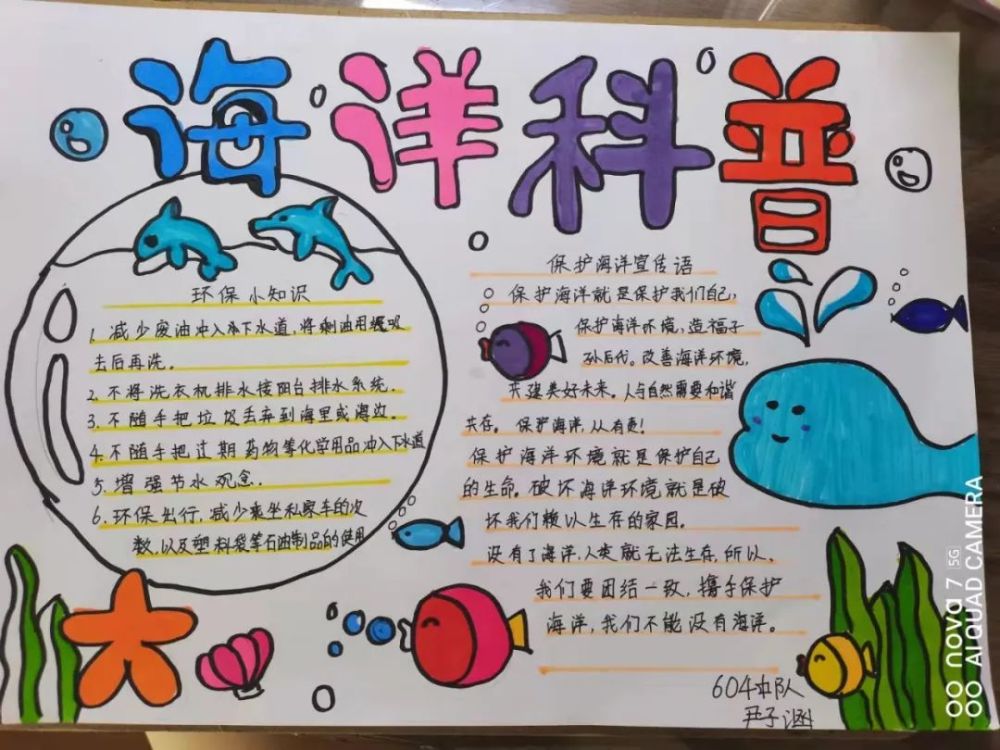 海洋科普
环保小知识
1. 减少废油冲入下水道,将剩油用纸吸
去后再洗。
2. 不将洗衣机排水接阳台排水系统.
3. 不随手把垃圾丢弃到海里或海边。
4. 不随手把过期药物等化学用品冲入下水道
5. 增强节水观念.
6. 环保出行,减少乘坐私家车的次
数,以及塑料袋等石油制品的使用
保护海洋宣传语
保护海洋就是保护我们自己,
保护海洋环境,造福子
孙后代。改善海洋环境,
共建美好未来。人与自然需要和谐
共存。保护海洋,从有更!
保护海洋环境就是保护自己
的生命。破坏海洋环境就是破
坏我们赖以生存的家园。
没有了海洋,人类就无法生存,所以,
我们要团结一致,携手保护
海洋,我们不能没有海洋。
604中队
尹子涵
nova 7 5G
AI QUAD CAMERA